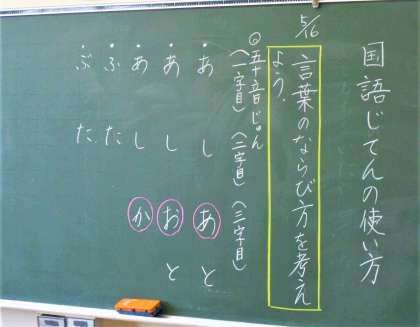 国語じてんの使い方
5/16
言葉のならび方を考え
よう。
◎五十音じゅん
(一字目)(二字目)(三字目)
あしあと
あしおと
あしか
ふた
ぶた